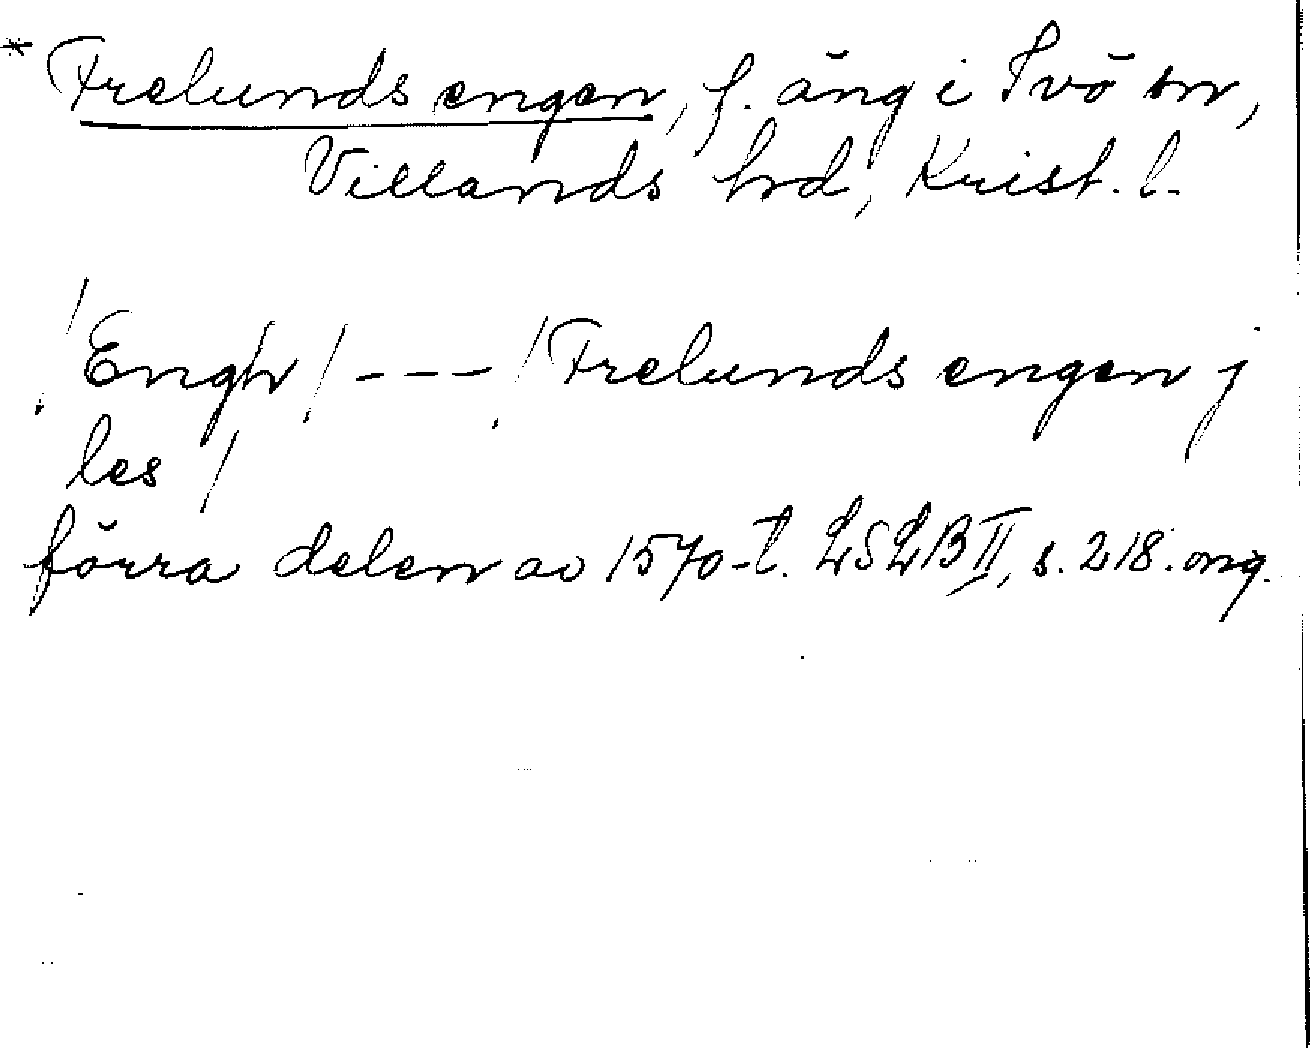 * Frelunds engen, f. äng i Ivö sn,
Villands hrd, Krist. l.
/: Engh /: --- /: Frelunds engen j
les /
förra delen av 1570-t. LSLB II, s. 218. orig.